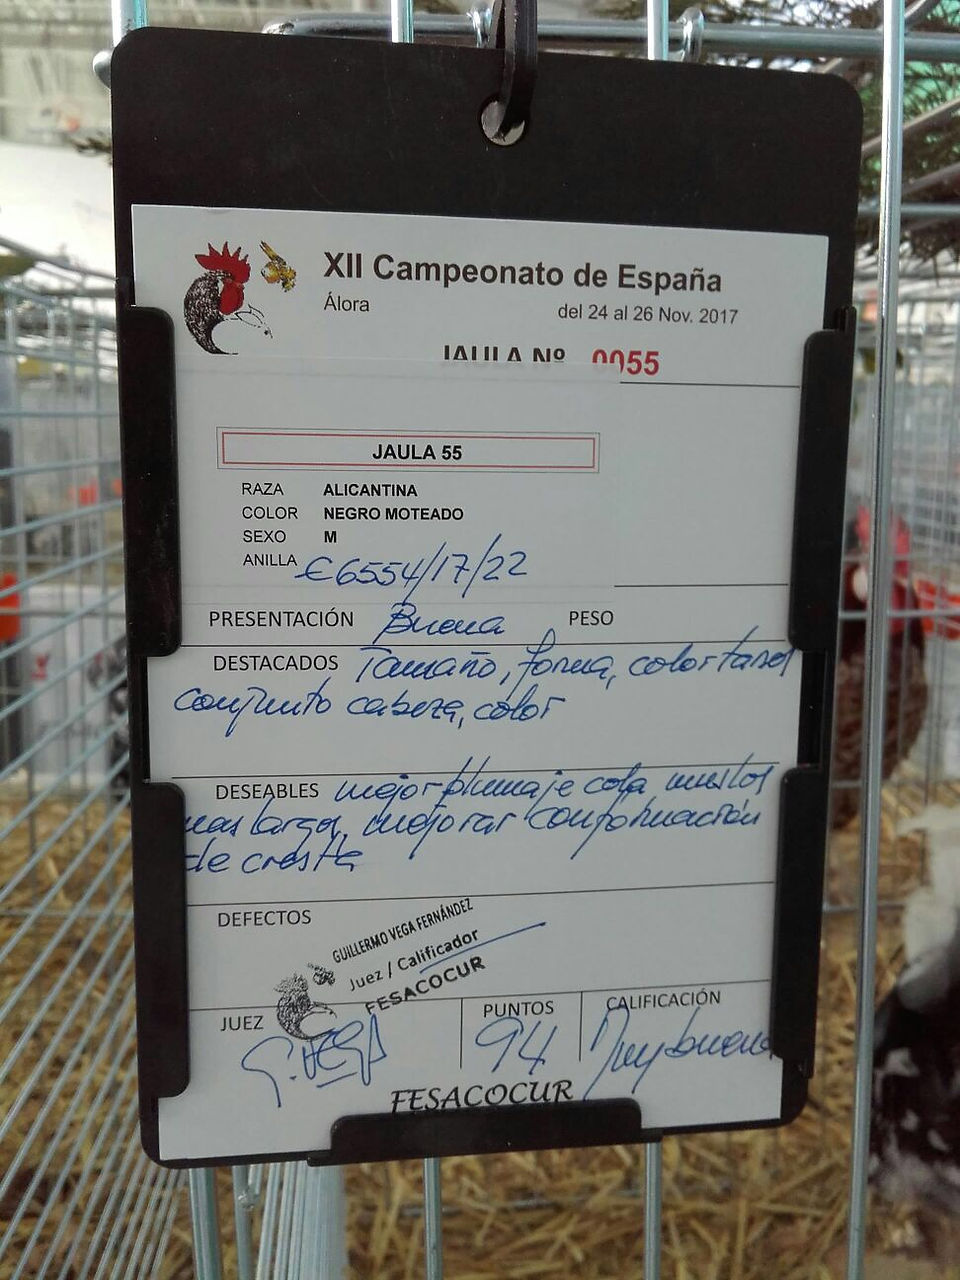 XII Campeonato de España
Álora del 24 al 26 Nov. 2017
JAULA Nº 0055
JAULA 55
RAZA ALICANTINA
COLOR NEGRO MOTEADO
SEXO M
ANILLA €6554/17/22
PRESENTACIÓN Buena PESO
DESTACADOS Tamaño, forma, color tarsos
conjunto cabeza, color
DESEABLES mejor plumaje cola muslos
mas largos, mejorar conformación
de cresta
DEFECTOS
GUILLERMO VEGA FERNÁNDEZ
Juez / Calificador
FESACOCUR
JUEZ G. VEGA PUNTOS 94 CALIFICACIÓN Muy buena
FESACOCUR